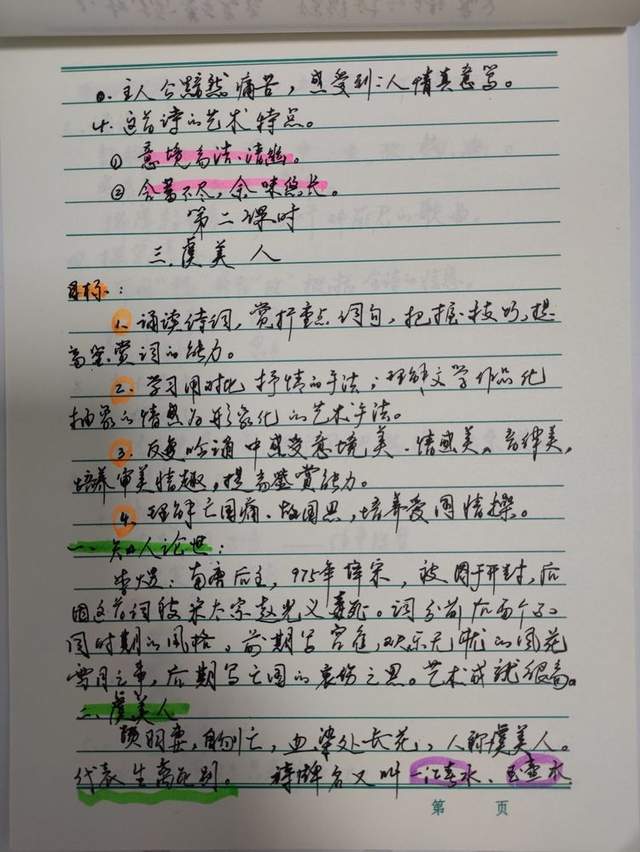 主人公黯然痛苦，感受到：人情真意笃。
十. 这首诗的艺术特点。
① 意境高洁、清幽。
② 含蓄不尽，余味悠长。
第二课时
三.虞美人
目标：
1. 诵读诗词，赏析重点词句，把握技巧，提
高鉴赏词的能力。
2. 学习用对比抒情的手法；理解文学作品化
抽象的情感为形象化的艺术手法。
3. 反复吟诵中感受意境美、情感美、音律美，
培养审美情趣，提高鉴赏能力。
4. 理解亡国痛、故国思，培养爱国情操。
一、知人论世：
李煜：南唐后主，975年降宋，被囚于开封，后
因这首词被宋太宗赵光义毒死。词分前后两个不
同时期的风格，前期写宫廷，欢乐无忧的风花
雪月之事，后期写亡国的哀伤之思。艺术成就很高。
二、虞美人
项羽妻，自刎亡，血染处长花，人称虞美人。
代表生离死别。 词牌名又叫一江春水、玉壶水
第 页